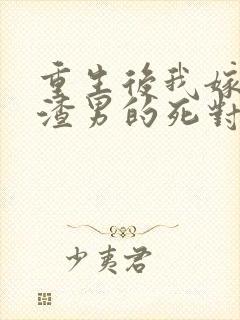 重生後我嫁
渣男的死對
少夷君